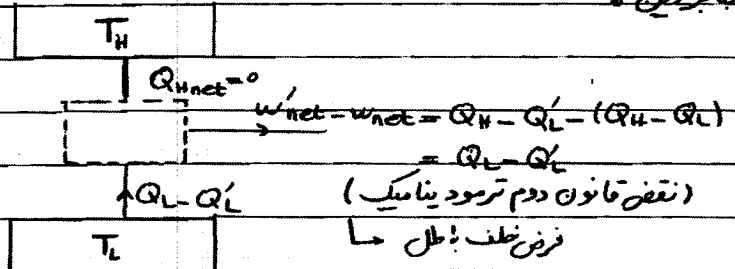 بنابراین :
T_H
Q_Hnet = 0
w'_net - w_net = Q_H - Q'_L - (Q_H - Q_L)
= Q_L - Q'_L
Q_L - Q'_L
(نقض قانون دوم ترمودینامیک)
T_L
فرض خلف باطل